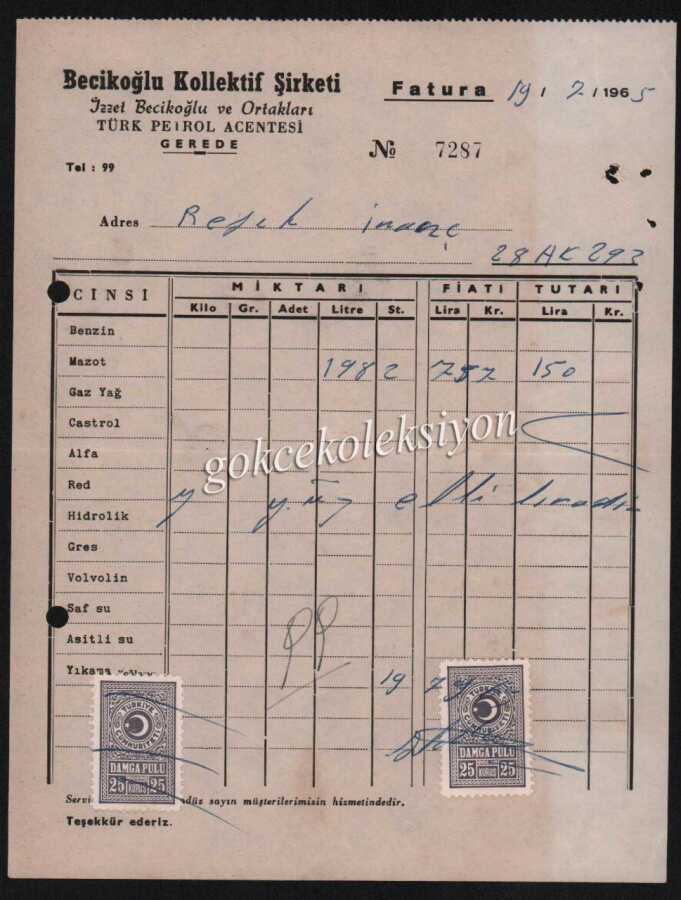 Becikoğlu Kollektif Şirketi
İzzet Becikoğlu ve Ortakları
TÜRK PETROL ACENTESİ
GEREDE
Tel : 99
Fatura 19 / 2 / 1965
№ 7287
Adres Refik inanç
28 AK 293
CINSI MİKTARI FİATI TUTARI
Kilo Gr. Adet Litre St. Lira Kr. Lira Kr.
Benzin
Mazot 1982 757 150
Gaz Yağ
Castrol
Alfa
gokcekoleksiyon
Red
Y. yüz elli liradır
Hidrolik
Gres
Volvolin
Saf su
Asitli su
Yıkama
19
TÜRKİYE CUMHURİYETİ
DAMGA PULU
25 KURUŞ 25
TÜRKİYE CUMHURİYETİ
DAMGA PULU
25 KURUŞ 25
sayın müşterilerimisin hizmetindedir.
Teşekkür ederiz.